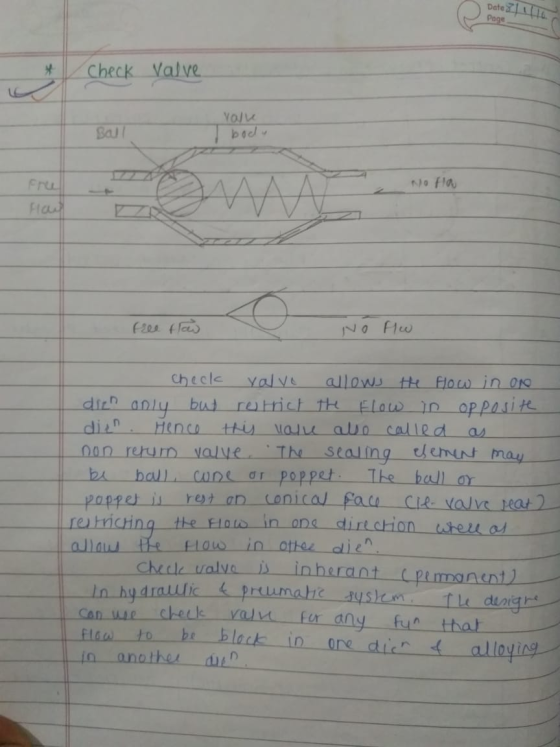 Date 3/1/16
Page
* Check Valve
Valve
Ball body
Free No flow
flow
Free flow No flow
Check valve allows the flow in one
dirn only but restrict the flow in opposite
dirn. Hence this valve also called as
non return valve. The sealing element may
be ball, cone or poppet. The ball or
poppet is rest on conical face (i.e. valve seat)
restricting the flow in one direction where as
allow the flow in other dirn.
Check valve is inherant (permanent)
in hydraulic & pneumatic system. The designe
can use check valve for any fun that
flow to be block in one dirn & alloying
in another dirn.